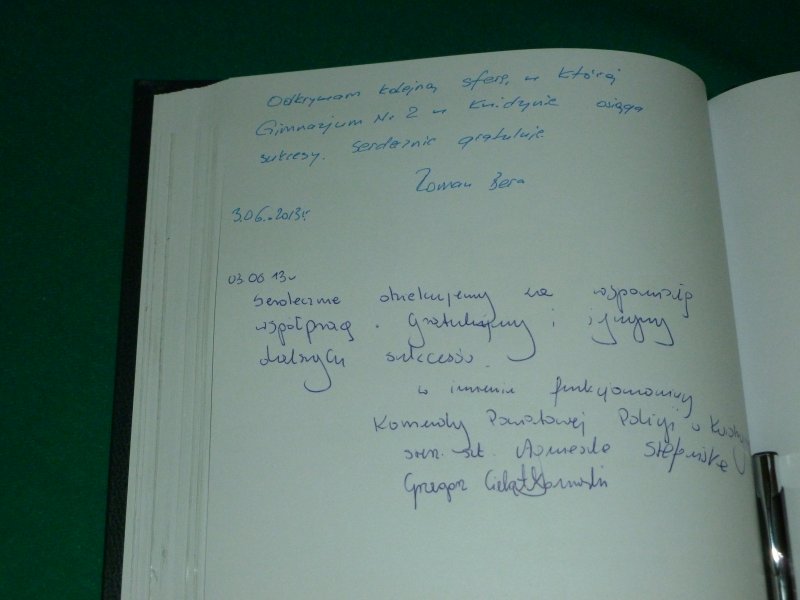 Odkrywam kolejną sferę, w której
Gimnazjum Nr 2 w Kwidzynie osiąga
sukcesy. Serdecznie gratuluję
Roman Bera
3.06.2013r.
03.06.13r
Serdecznie dziękujemy za wspaniałą
współpracę. Gratulujemy i życzymy
dalszych sukcesów.
w imieniu funkcjonariuszy
Komendy Powiatowej Policji w
sierż. szt. Agnieszka Stefańska
Grzegorz